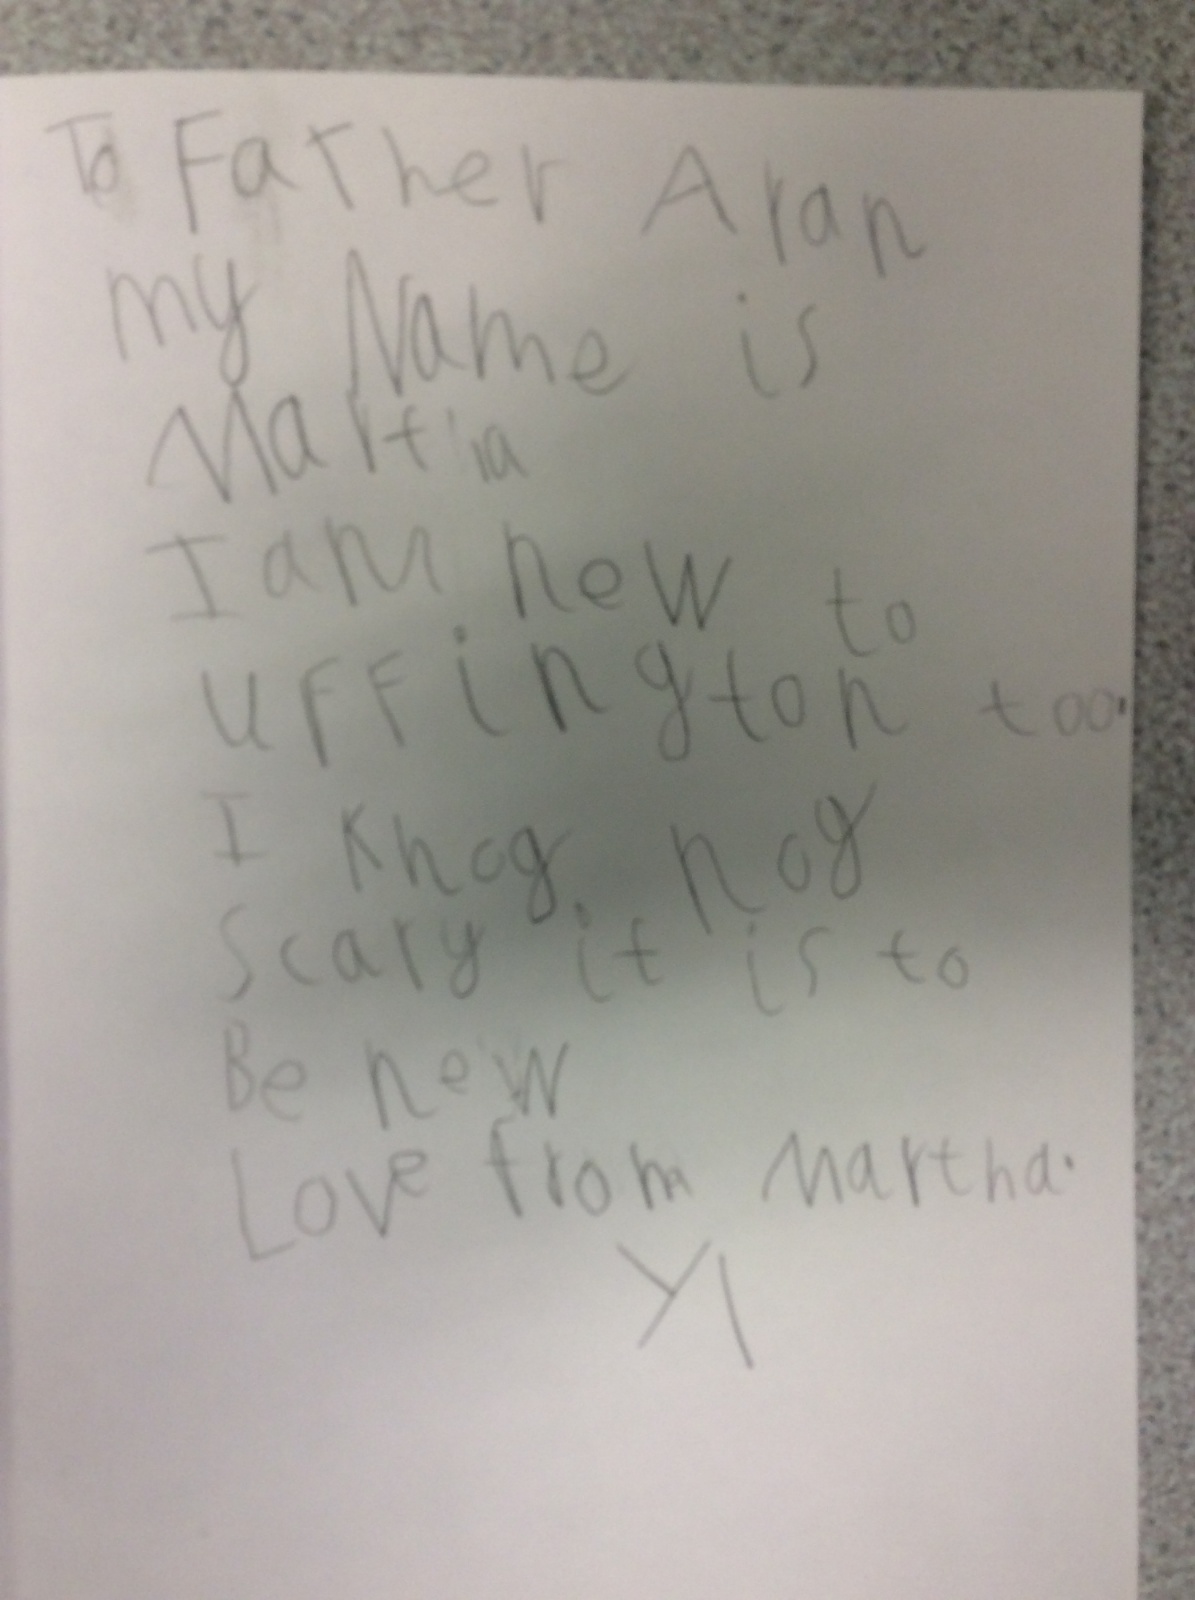 To Father Aran
my Name is
Martha
I am new to
uffington too.
I Knog nog
Scary it is to
Be new
Love from Martha.
Y1